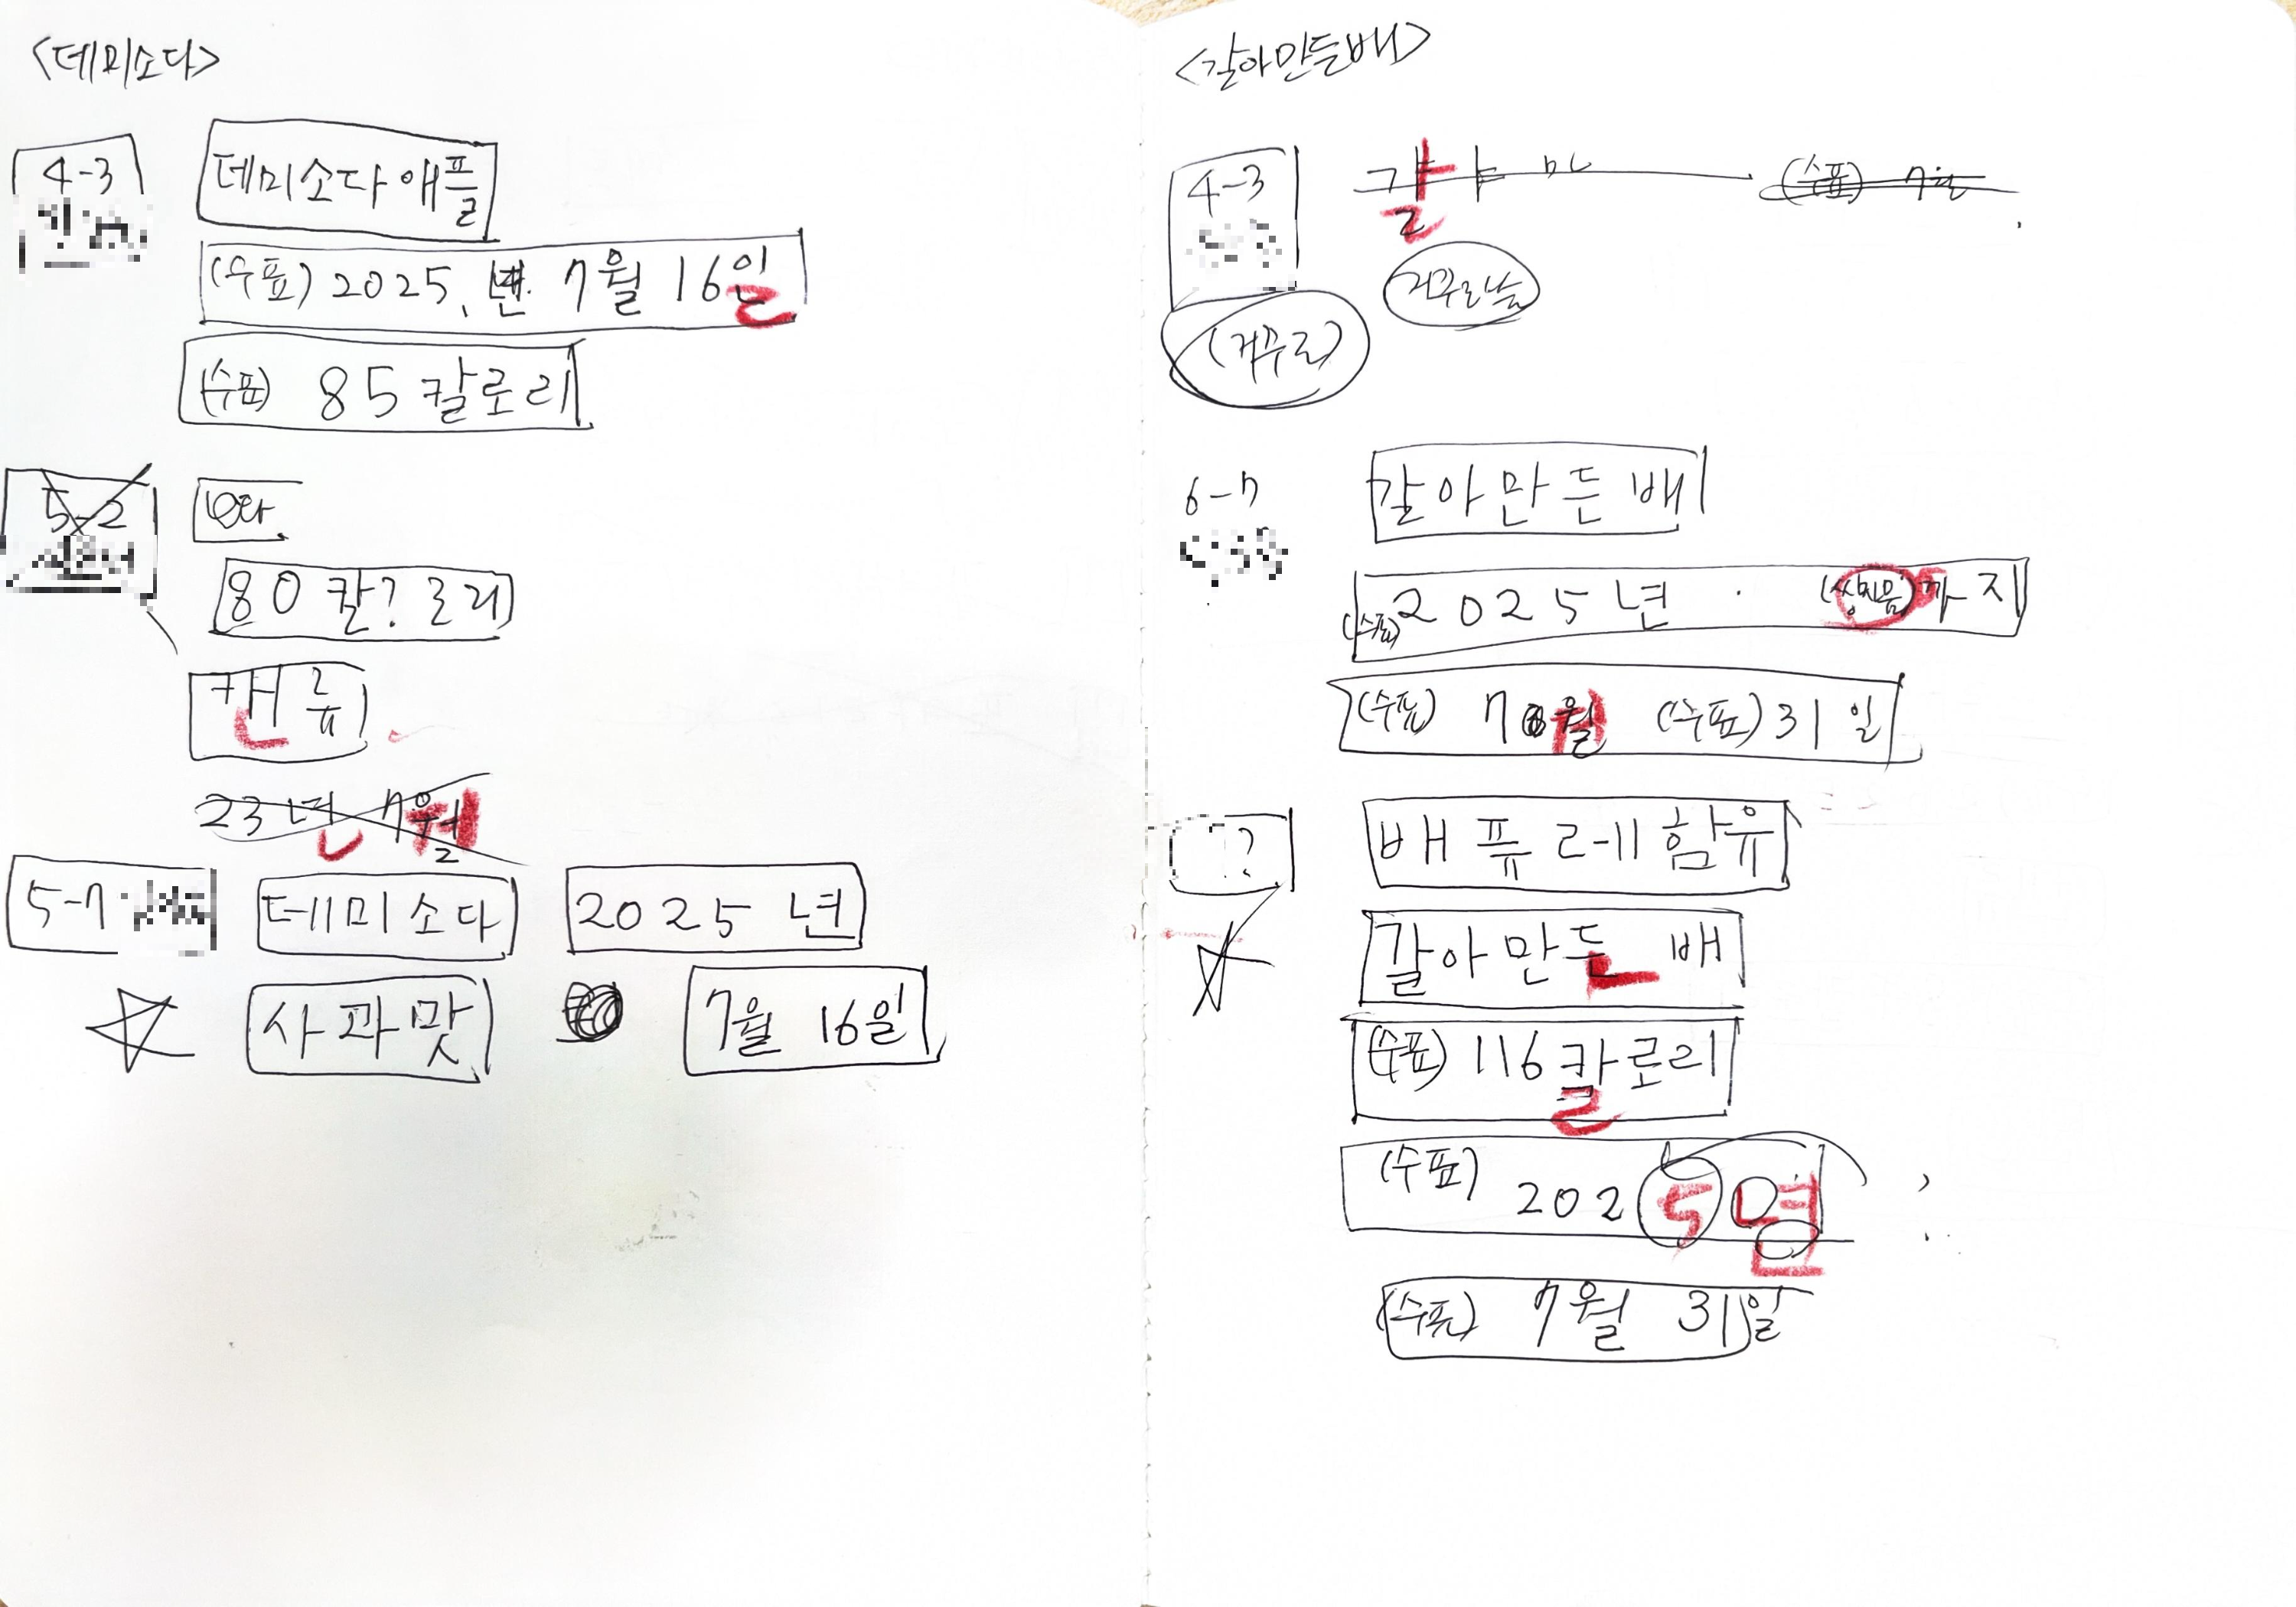 <데미소다>
4-3
데미소다애플
(수표) 2025. 년 7월 16일
(수표) 85칼로리
5-2
80 칼?로리
캔류
23년 7월
5-7
데미소다 2025년
사과맛 7월 16일
<갈아만든배>
4-3
갈아 만
(수표) 7월
(거꾸로)
6-7
갈아만든배
(수표) 2025년 . (쌍지읒) 까지
(수표) 7월 (수표) 31일
?
배퓨레함유
갈아만든 배
(수표) 116칼로리
(수표) 2025면
(수표) 7월 31일